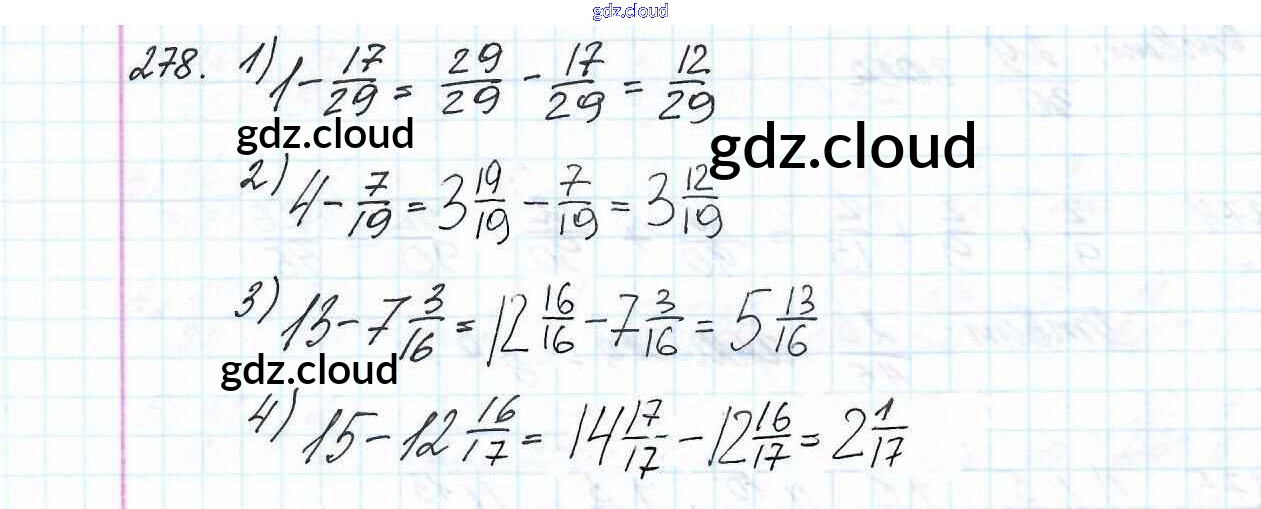 gdz.cloud
278. 1) 1 - 17/29 = 29/29 - 17/29 = 12/29
gdz.cloud
gdz.cloud
2) 4 - 7/19 = 3 19/19 - 7/19 = 3 12/19
3) 13 - 7 3/16 = 12 16/16 - 7 3/16 = 5 13/16
gdz.cloud
4) 15 - 12 16/17 = 14 17/17 - 12 16/17 = 2 1/17